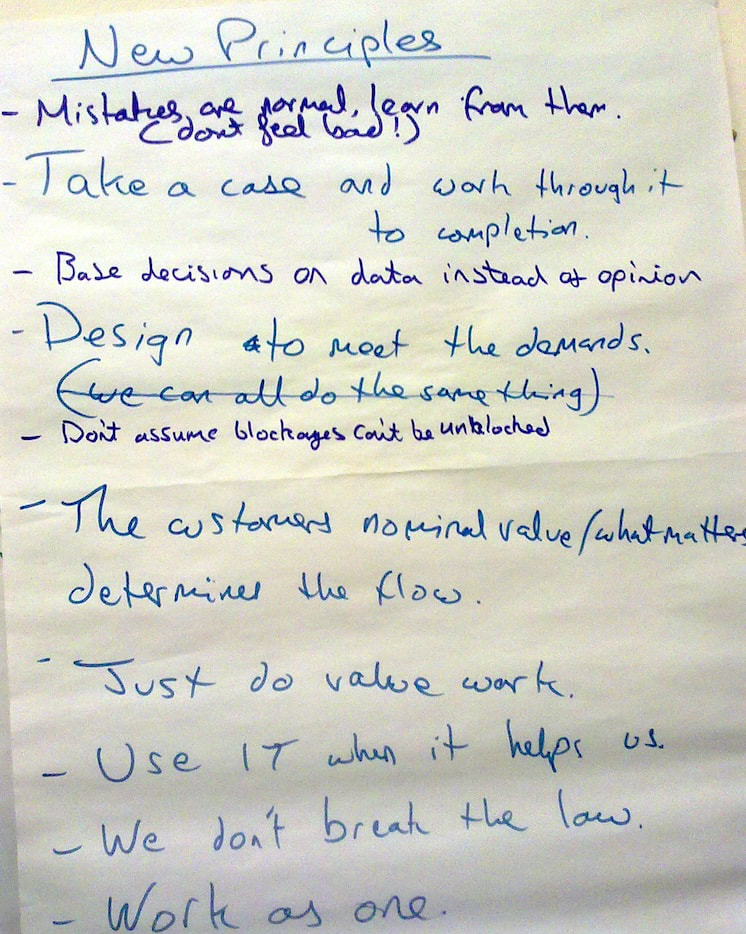 New Principles
- Mistakes are normal, learn from them.
(don't feel bad!)
- Take a case and work through it
to completion.
- Base decisions on data instead of opinion
- Design to meet the demands.
(we can all do the same thing)
- Don't assume blockages can't be unblocked
- The customers nominal value/what matters
determines the flow.
- Just do value work.
- Use IT when it helps us.
- We don't break the law.
- Work as one.